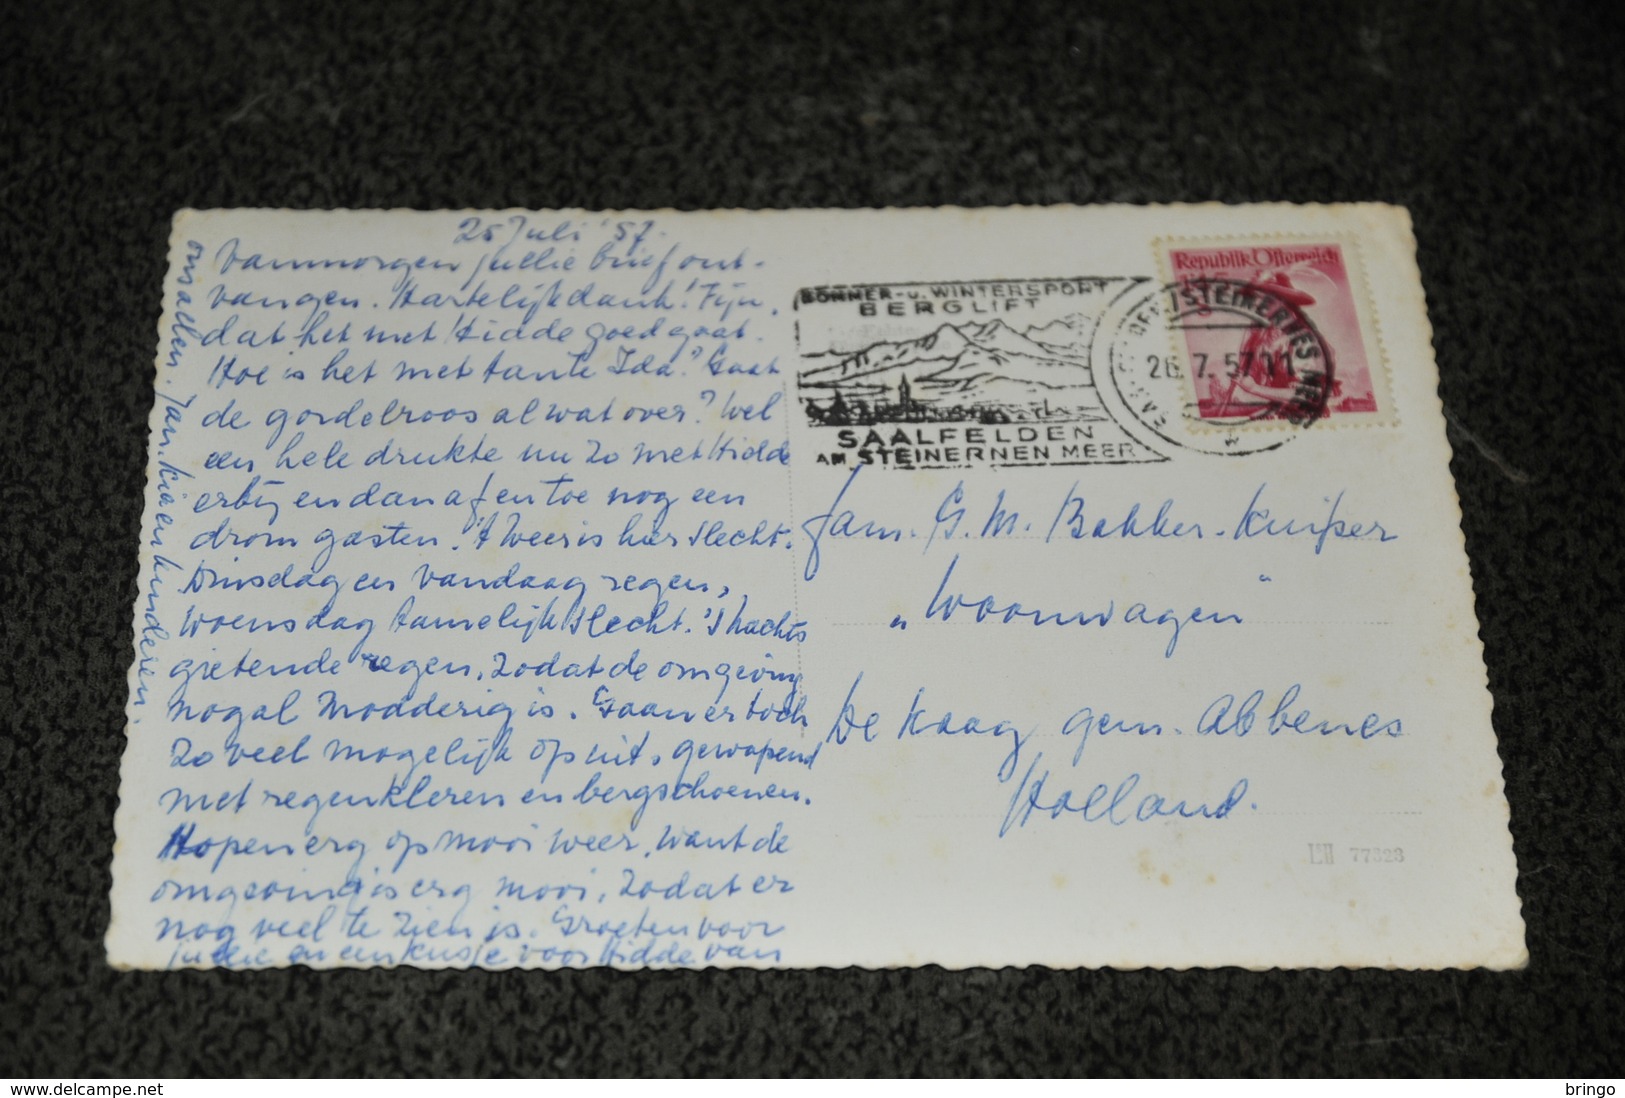 25 Juli '57.
Vanmorgen jullie brief ont-
vangen. Hartelijk dank! Fijn,
dat het met Hidde goed gaat.
Hoe is het met tante Ida? Gaat
de gordelroos al wat over? Wel
een hele drukte nu zo met Hidde
erbij en dan af en toe nog een
drom gasten. 't Weer is hier slecht.
Dinsdag en vandaag regen,
woensdag tamelijk slecht. 's Nachts
gietende regen, zodat de omgeving
nogal modderig is. Gaan er toch
zo veel mogelijk op uit, gewapend
met regenkleren en bergschoenen.
Hopen erg op mooi weer, want de
omgeving is erg mooi, zodat er
nog veel te zien is. Groeten voor
jullie en een kusje voor Hidde van
ons allen. Jan. en kinderen.
SOMMER- u. WINTERSPORT
BERGLIFT
SAALFELDEN
AM STEINERNEN MEER
26. 7. 57 11
Republik Österreich
Fam. G. M. Bakker-Kuiper
„Woonwagen"
De Kaag gem. Abbenes
Holland.
77323
delcampe.net
bringo